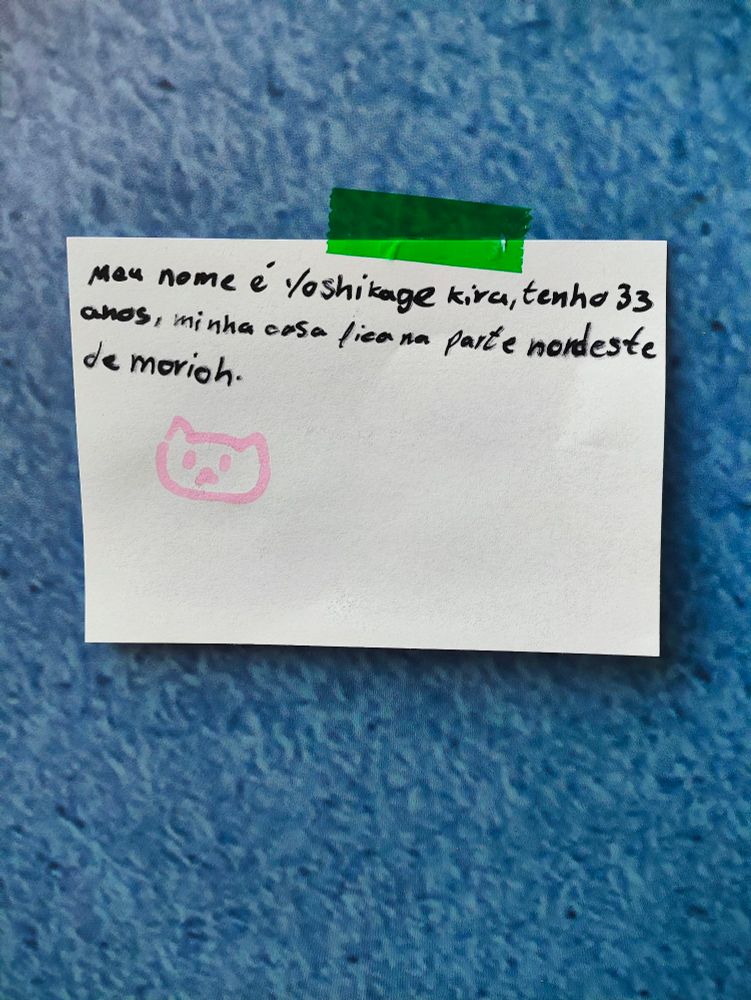 Meu nome é Yoshikage kira, tenho 33
anos, minha casa fica na parte nordeste
de morioh.